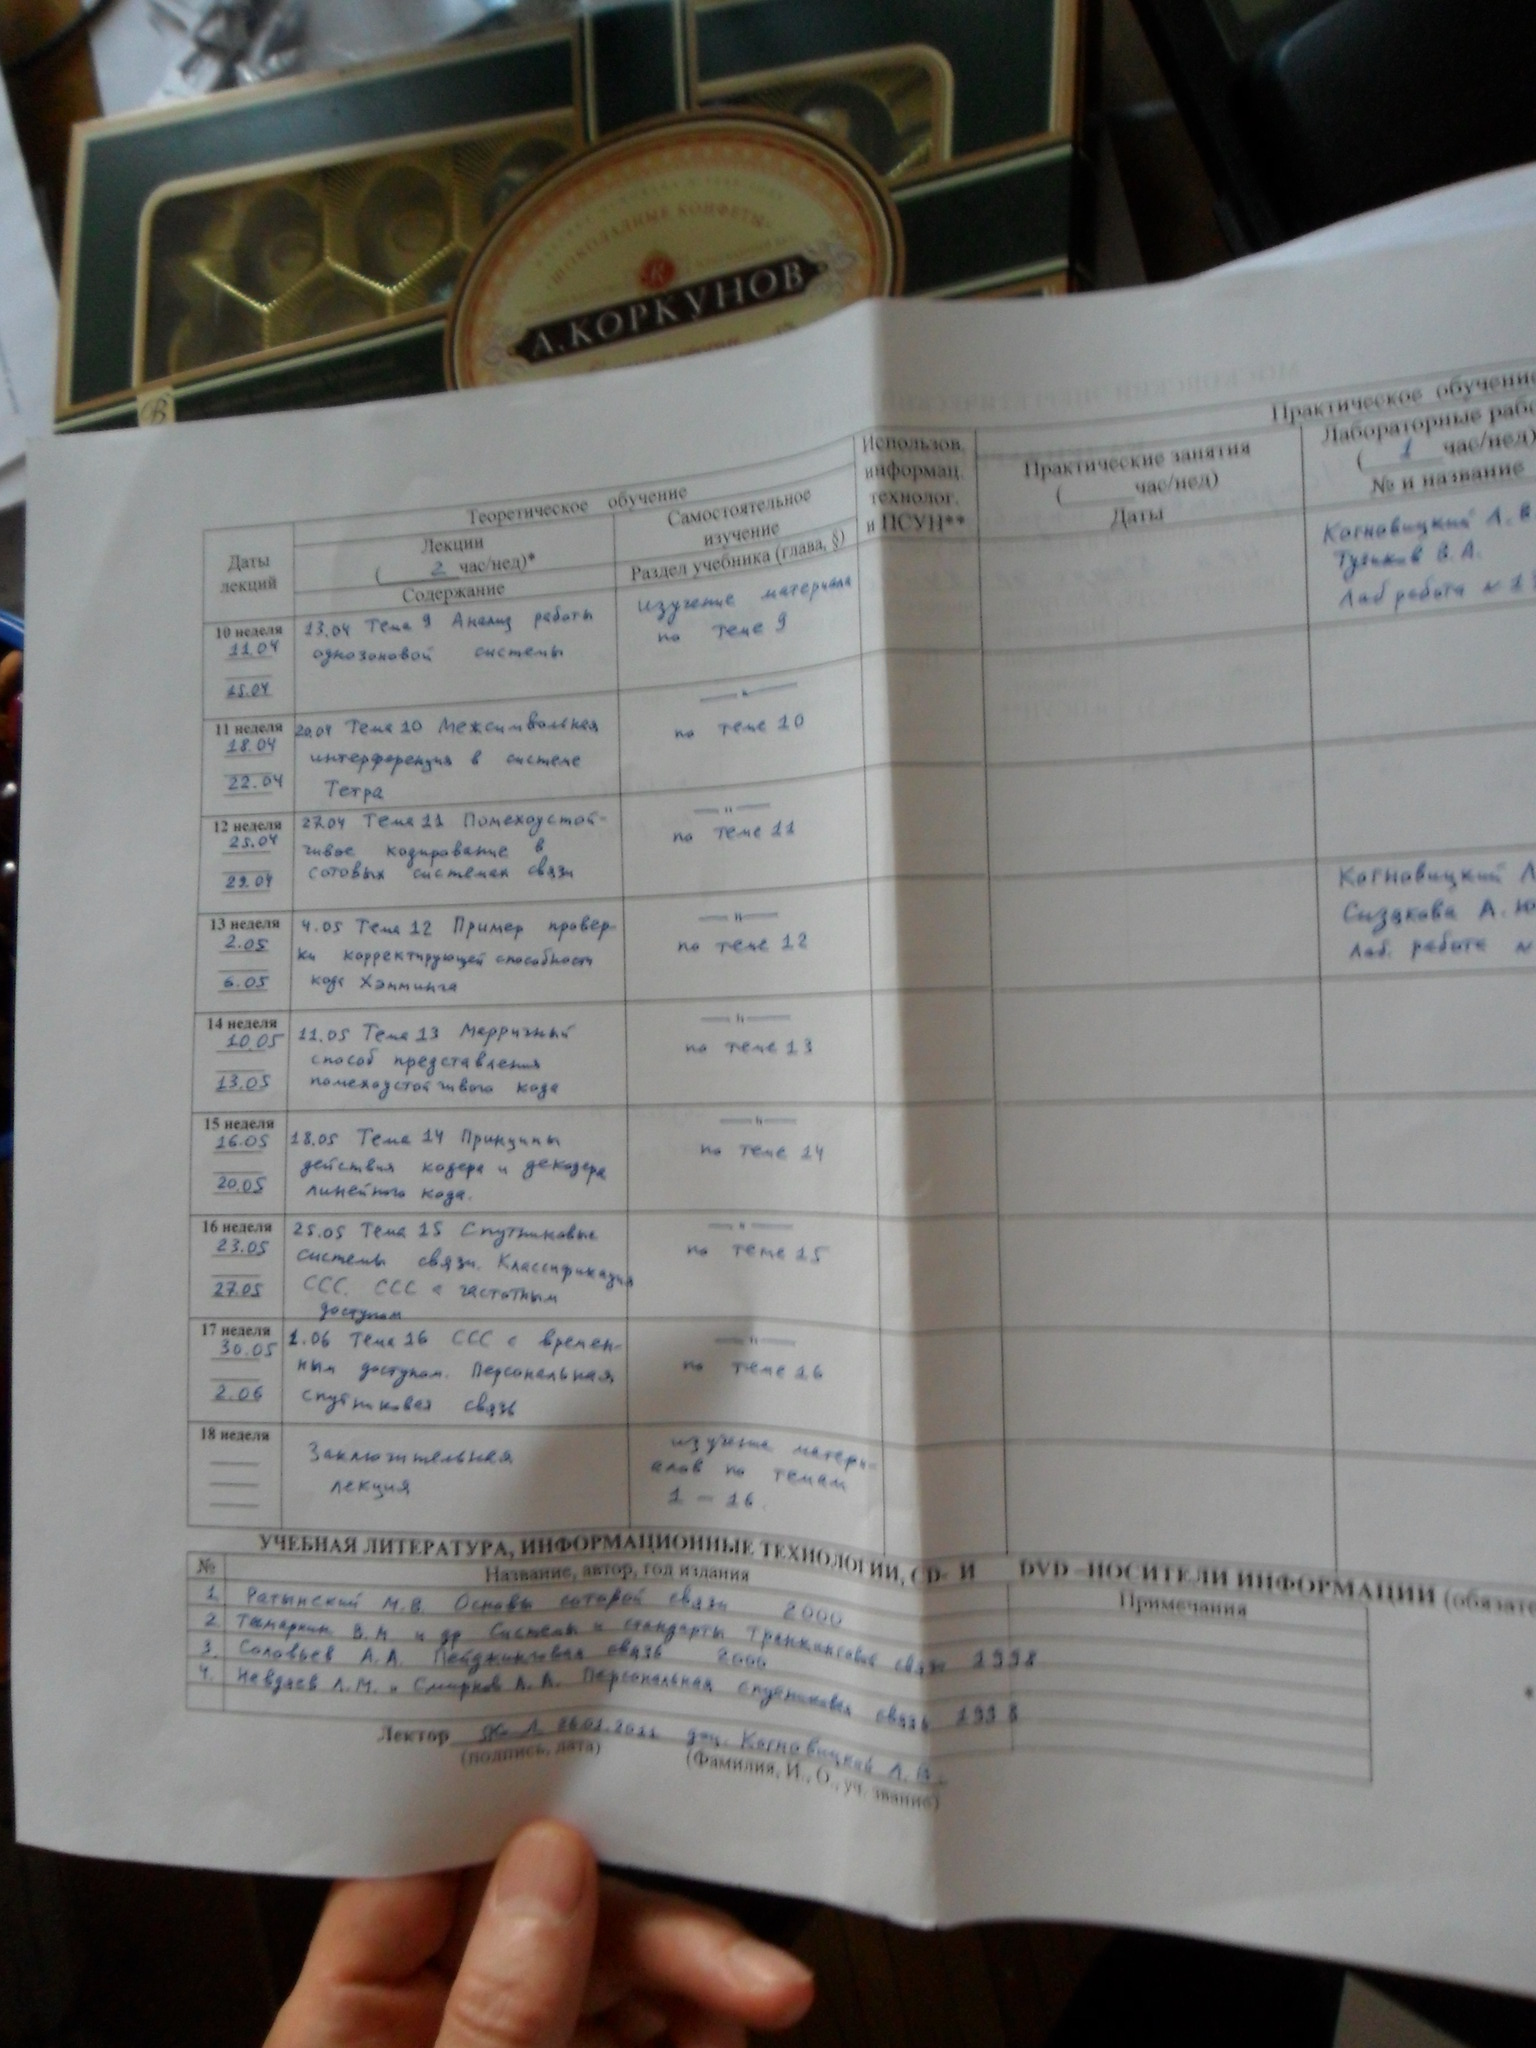 ШОКОЛАДНЫЕ КОНФЕТЫ
А.КОРКУНОВ
Практическое обучение
Теоретическое обучение
Даты
лекций
Лекции
( 2 час/нед)*
Содержание
Самостоятельное
изучение
Раздел учебника (глава, §)
Использов.
информац.
технолог.
и ПСУН**
Практические занятия
(______час/нед)
Даты
Лабораторные рабо
( 1 час/нед)
№ и название
10 неделя
11.04
15.04
13.04 Тема 9 Анализ работы
однозоновой системы
изучение материала
по теме 9
Когновицкий Л.В.
В.А.
Лаб работа №
11 неделя
18.04
22.04
20.04 Тема 10 Межсимвольная
интерференция в системе
Тетра
— " —
по теме 10
12 неделя
25.04
29.04
27.04 Тема 11 Помехоустой-
чивое кодирование в
сотовых системах связи
— " —
по теме 11
13 неделя
2.05
6.05
4.05 Тема 12 Пример провер-
ки корректирующей способности
кода Хэмминга
— " —
по теме 12
Когновицкий Л
Сизякова А.Ю
Лаб. работа №
14 неделя
10.05
13.05
11.05 Тема 13 Матричный
способ представления
помехоустойчивого кода
— " —
по теме 13
15 неделя
16.05
20.05
18.05 Тема 14 Принципы
действия кодера и декодера
линейного кода.
— " —
по теме 14
16 неделя
23.05
27.05
25.05 Тема 15 Спутниковые
системы связи. Классификация
ССС. ССС с частотным
доступом
— " —
по теме 15
17 неделя
30.05
2.06
1.06 Тема 16 ССС с времен-
ным доступом. Персональная
спутниковая связь
— " —
по теме 16
18 неделя
Заключительная
лекция
изучение матери-
алов по темам
1 – 16.
УЧЕБНАЯ ЛИТЕРАТУРА, ИНФОРМАЦИОННЫЕ ТЕХНОЛОГИИ, CD- И DVD –НОСИТЕЛИ ИНФОРМАЦИИ (обязате
№ Название, автор, год издания Примечания
1. Ратынский М.В. Основы сотовой связи 2000
2. Тамаркин В.М и др Системы и стандарты транкинговой связи 1998
3. Соловьев А.А. Пейджинговая связь 2000
4. Невдяев Л.М. и Смирнов А.А. Персональная спутниковая связь 1998
Лектор 26.01.2011 доц. Когновицкий Л.В.
(подпись, дата) (Фамилия, И., О., уч. звание)
*